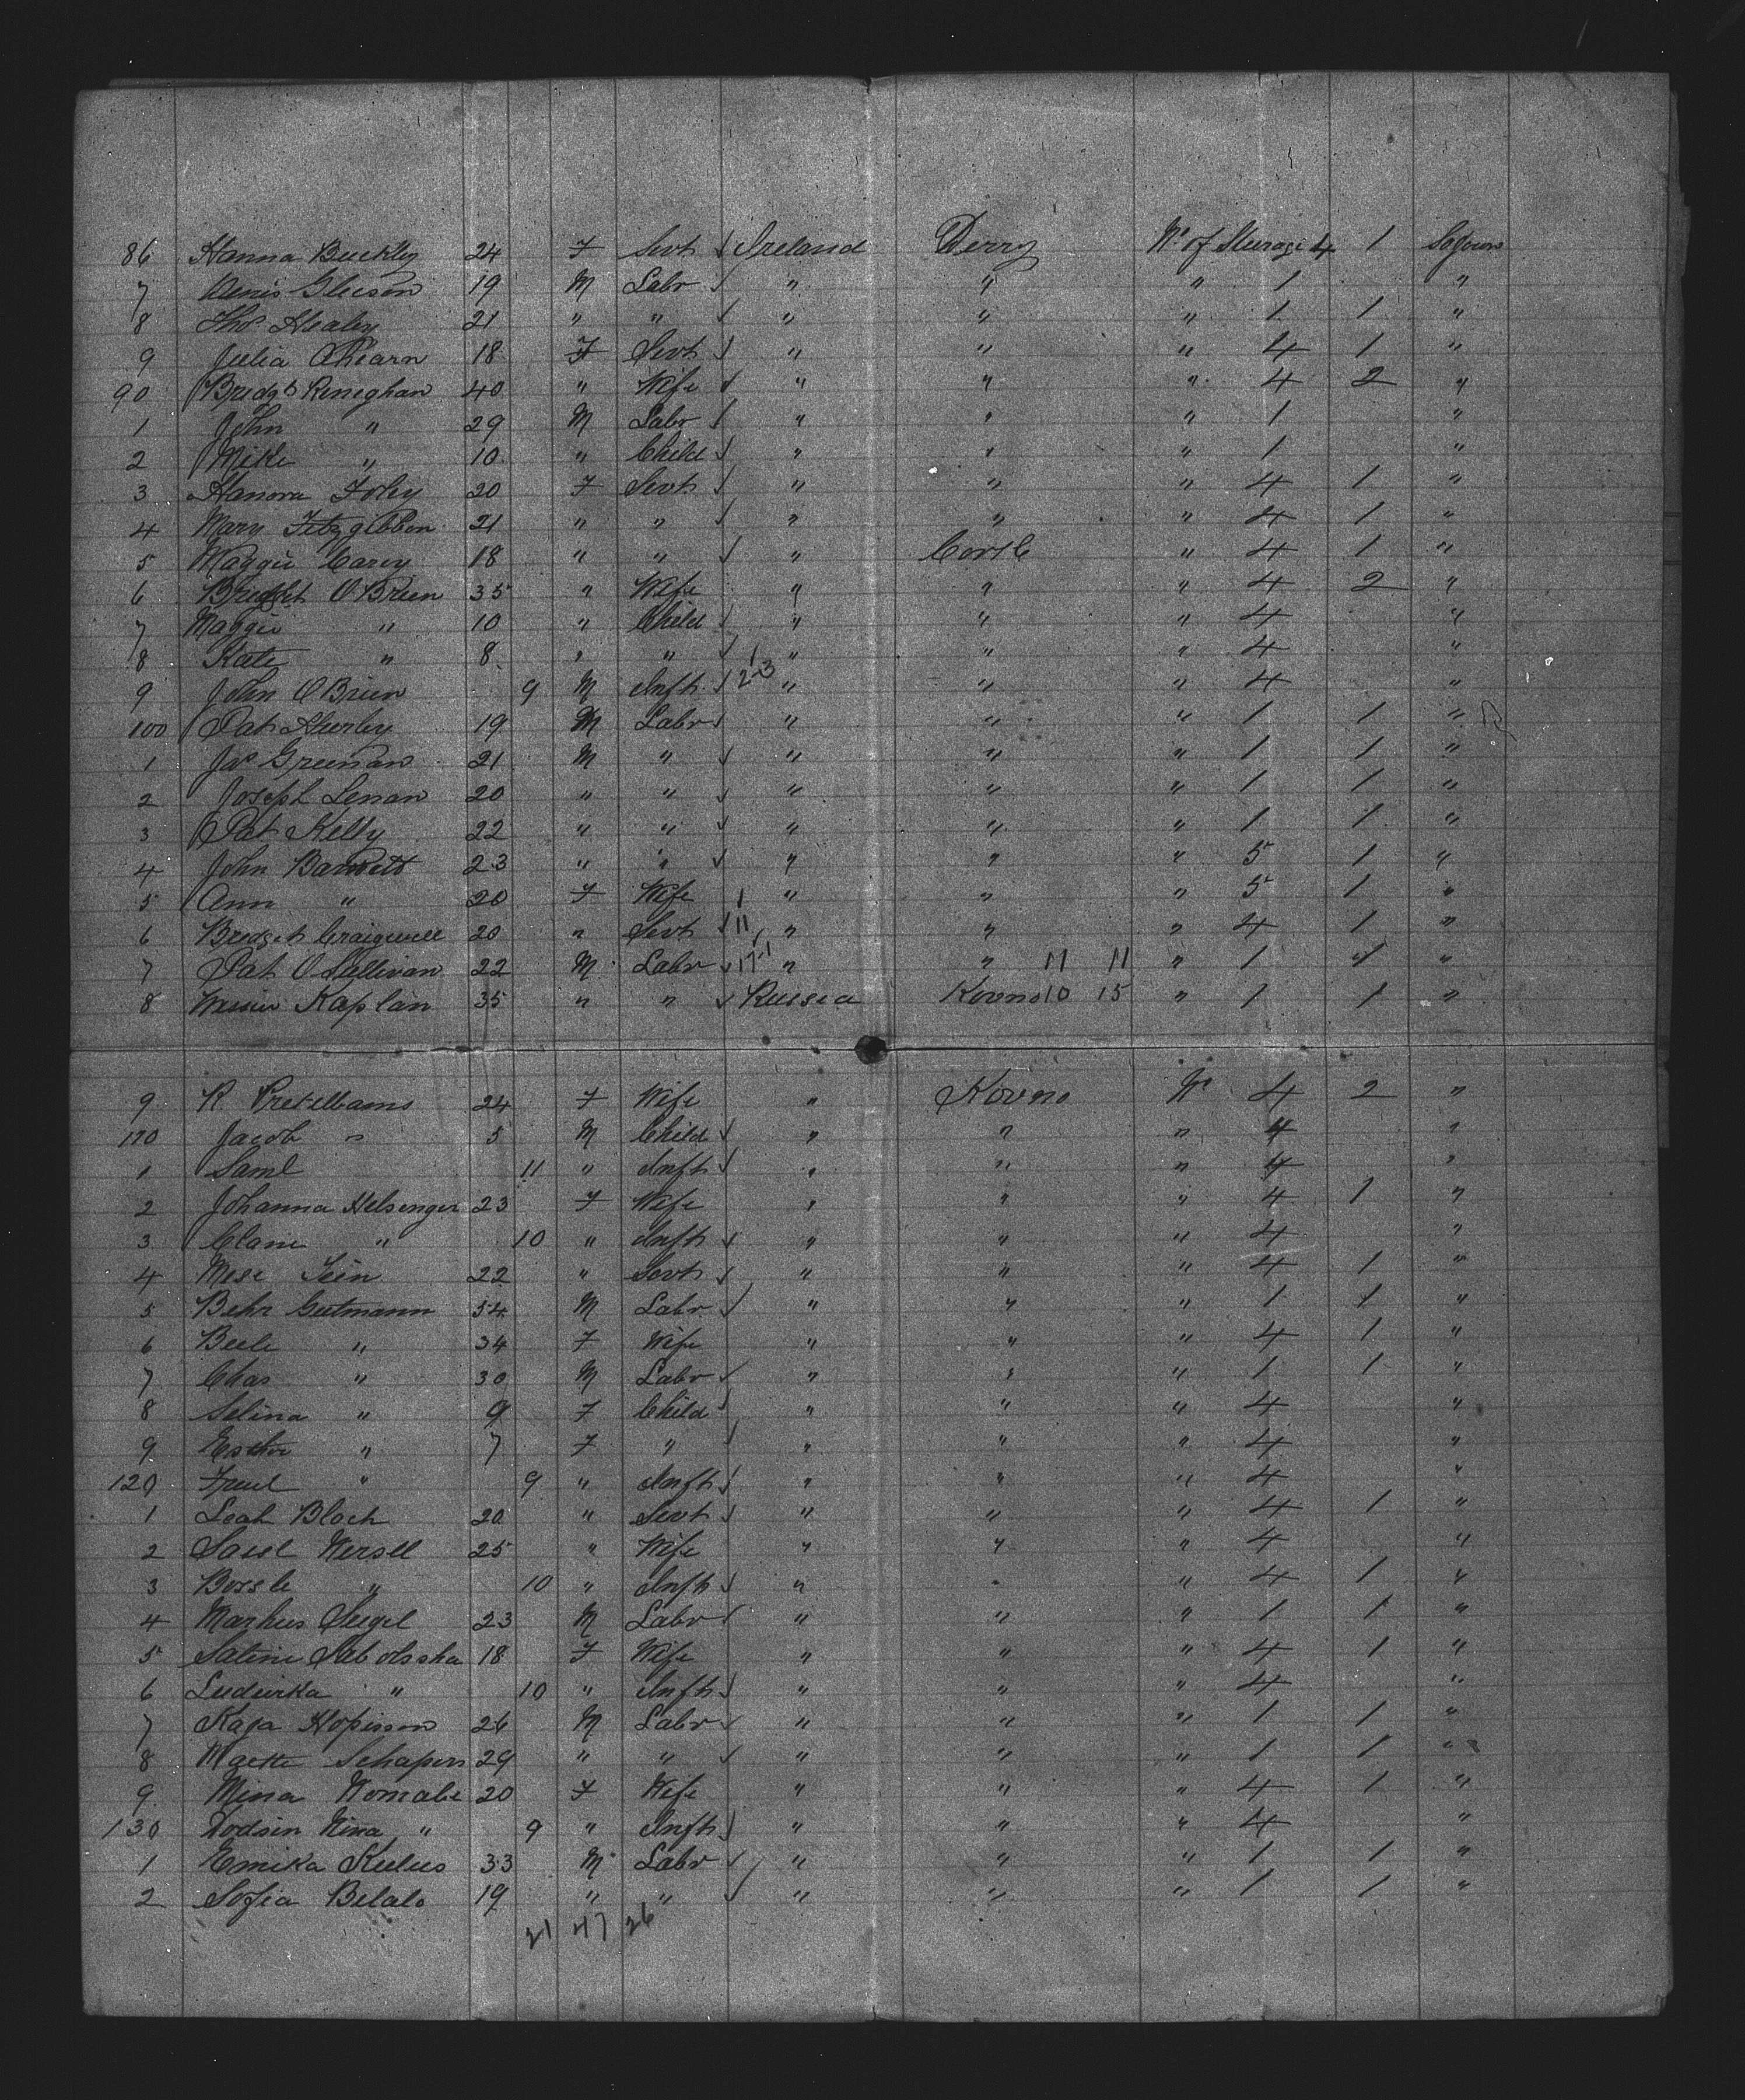 86 Hanna Buckley 24 F Servt Ireland Derry Nº of Steerage 4 1 Sojourn
7 Denis Gleeson 19 M Labr " " " 1 "
8 Thos Healey 21 " " " " " 1 1 "
9 Julia Ahearn 18 F Servt " " " 4 1 "
90 Bridgt Reneghan 40 " Wife " " " 4 2 "
1 John " 29 M Labr " " " 1 "
2 Mike " 10 " Child " " " 1 "
3 Hanora Foley 20 F Servt " " " 4 1 "
4 Mary Fitzgibbon 21 " " " " " 4 1 "
5 Maggie Carey 18 " " " Cork " 4 1 "
6 Bridget O'Brien 35 " Wife " " " 4 2 "
7 Maggie " 10 " Child " " " 4 "
8 Kate " 8 " " " " " 4 "
9 John O'Brien 9 M Inft 23 " " " 4 "
100 Pat Hurley 19 M Labr " " " 1 1 "
1 Jas Greenan 21 M " " " " 1 1 "
2 Joseph Lenan 20 " " " " " 1 1 "
3 Pat Kelly 22 " " " " " 1 1 "
4 John Barrett 23 " " " " " 5 1 "
5 Ann " 20 F Wife " " " 5 1 "
6 Bridget Craigwell 20 " Servt 11 " " " 4 1 "
7 Pat O'Sullivan 22 M Labr " " 11 11 " 1 1 "
8 Kaplan 35 " " Russia Kovno 10 15 " 1 1 "
9 R 24 F Wife " Kovno Nº 4 2 "
110 Jacob " 5 M Child " " " 4 "
1 Saml 11 " Inft " " " 4 "
2 Johanna Helsenger 23 F Wife " " " 4 1 "
3 " 10 " Inft " " " 4 "
4 Mese 22 " Servt " " " 4 1 "
5 Behr Gutmann 54 M Labr " " " 1 1 "
6 Beele " 34 F Wife " " " 4 1 "
7 Chas " 30 M Labr " " " 1 1 "
8 Selina " 9 F Child " " " 4 "
9 Esther " 7 F " " " " 4 "
120 " 9 " Inft " " " 4 "
1 Leah Bloch 20 " Servt " " " 4 1 "
2 25 " Wife " " " 4 "
3 " 10 " Inft " " " 4 1 "
4 Markus Siegel 23 M Labr " " " 1 1 "
5 18 F Wife " " " 4 1 "
6 Ludwika " 10 " Inft " " " 4 "
7 Kaja 26 M Labr " " " 1 1 "
8 29 " " " " " 1 1 "
9 Mina Womabe 20 F Wife " " " 4 1 "
130 Nina " 9 " Inft " " " 4 "
1 Emika Kulus 33 M Labr " " " 1 1 "
2 Sofia Belalo 19 " " " " " 1 1 "
21 47 26